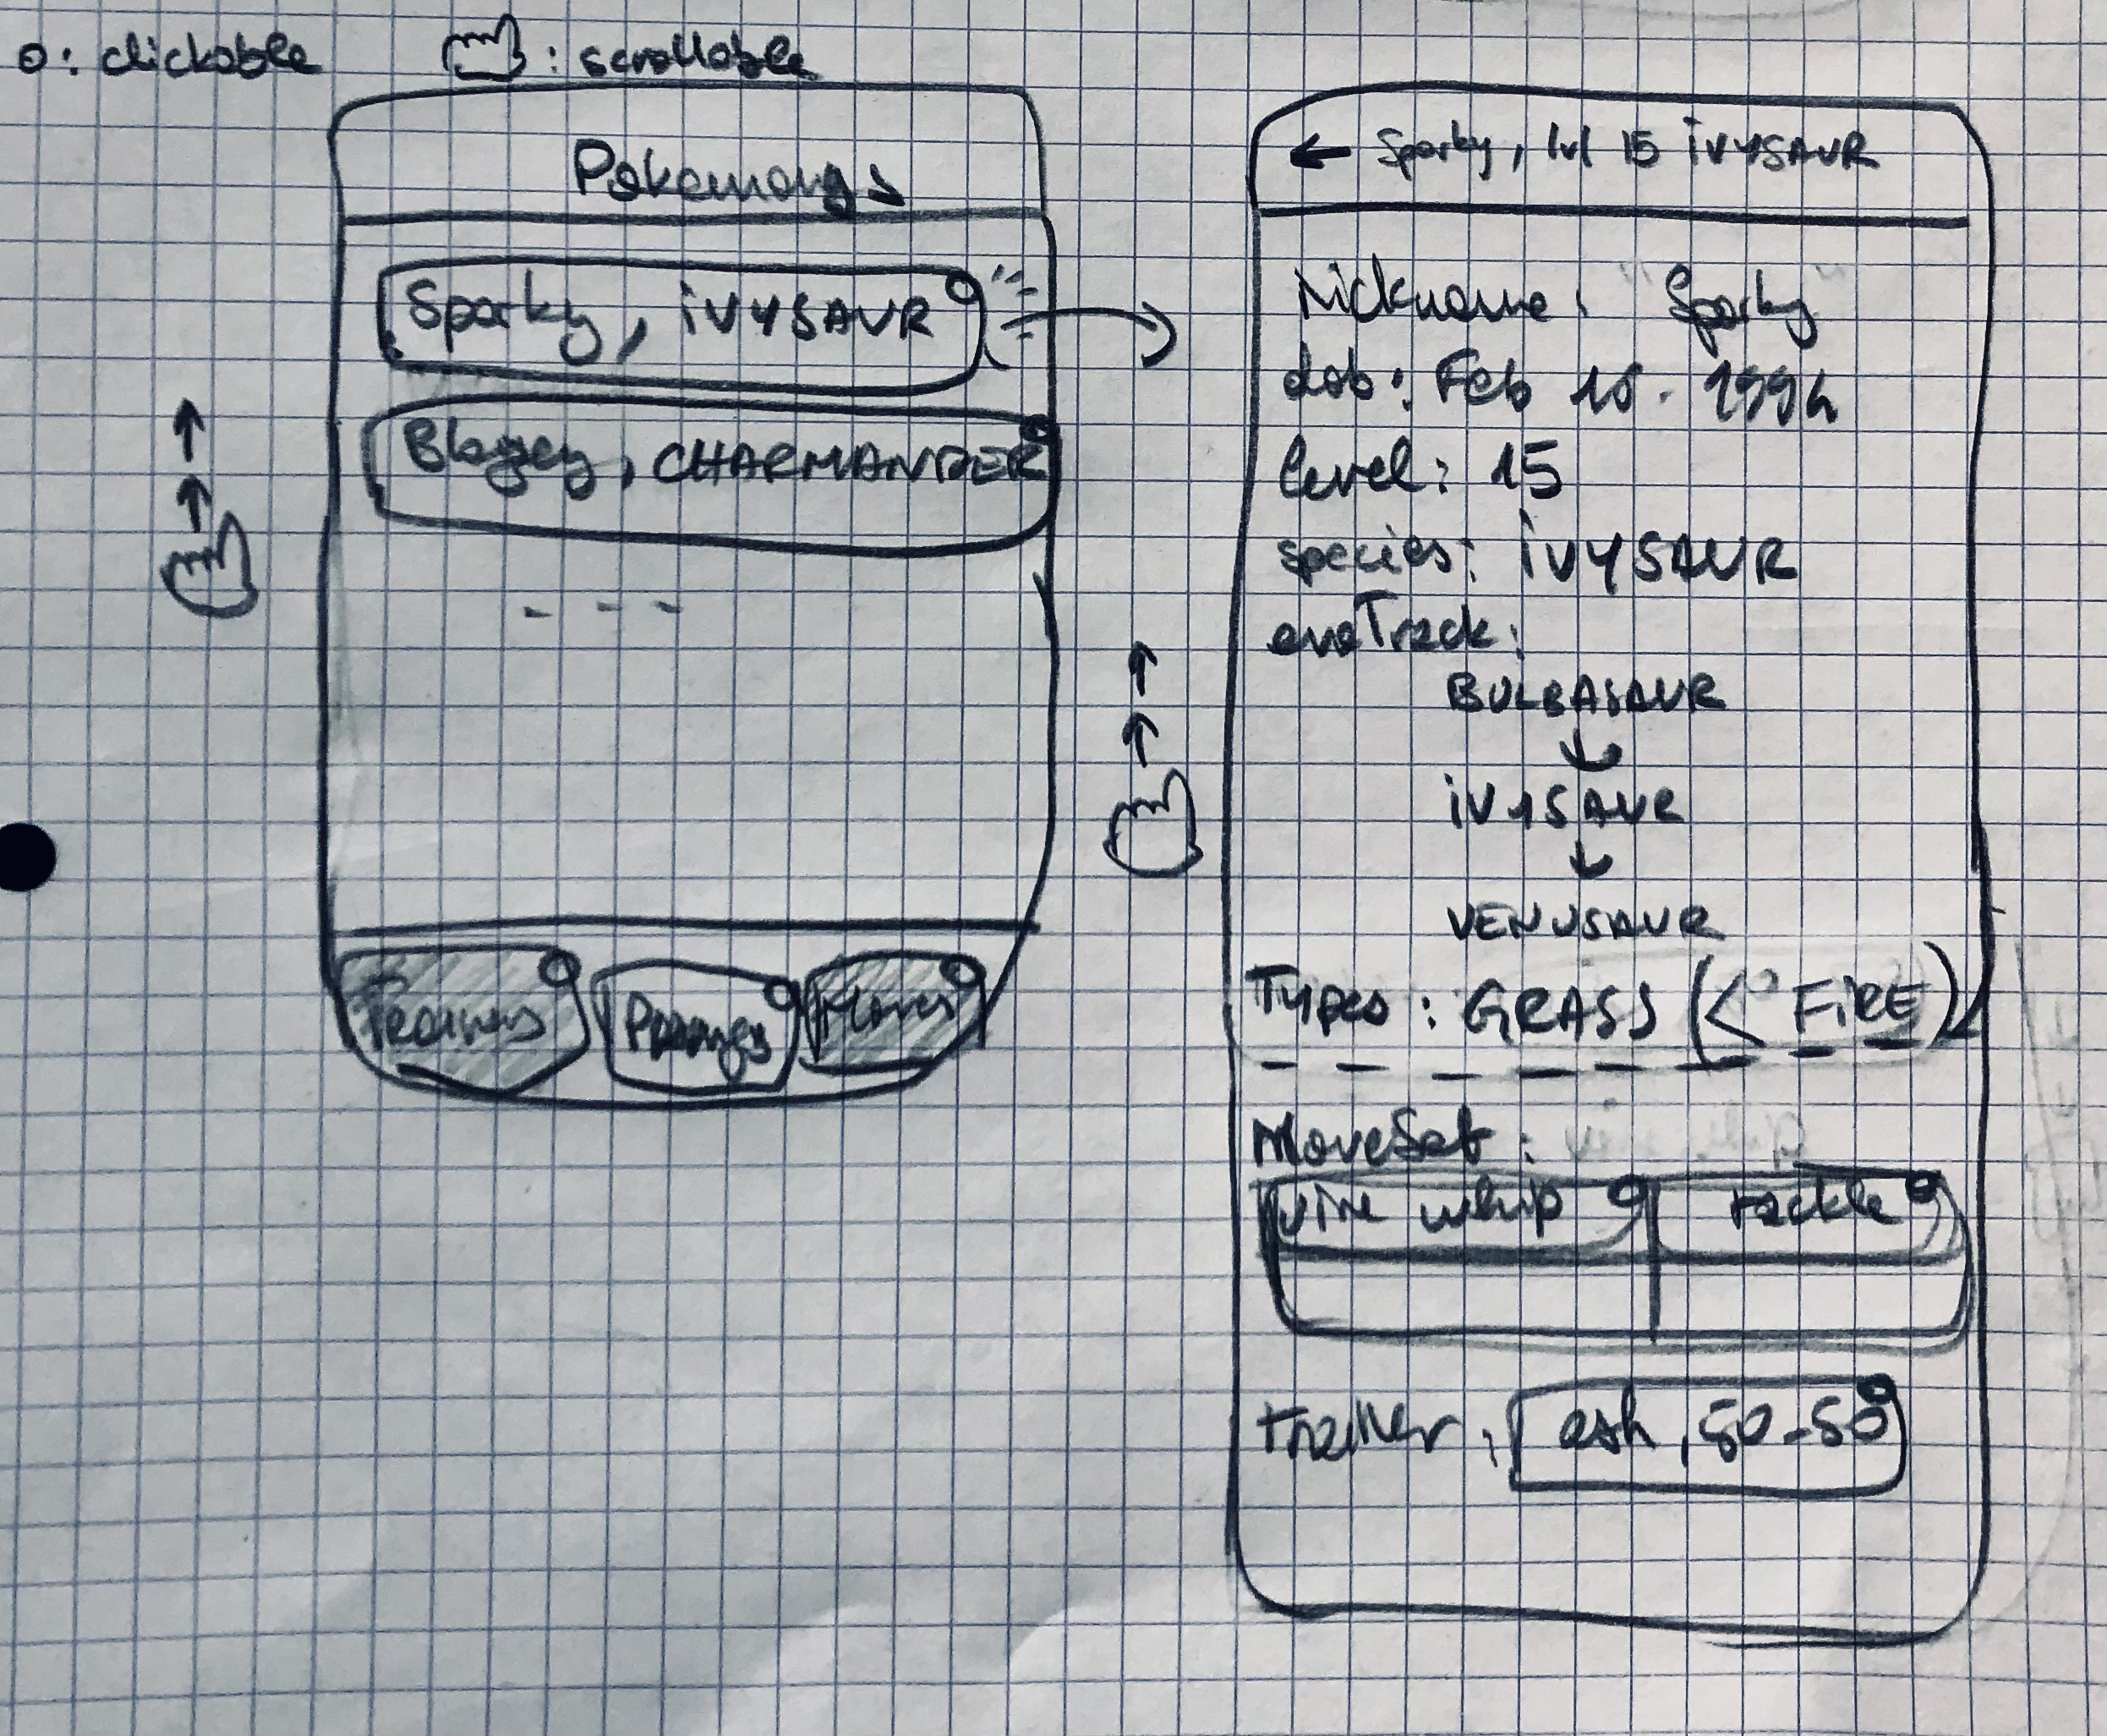 o: clickable : scrollable
Pokemons
Sparky, iVYSAUR
Blazey, CHARMANDER
- - -
Trainers
Moves
← Sparky, lvl 15 iVYSAUR
Nickname: "Sparky"
dob: Feb 1994
level: 15
species: iVYSAUR
evoTrack:
BULBASAUR
↓
iVYSAUR
↓
VENUSAUR
Types: GRASS (< FiRE)
MoveSet:
vine whip tackle
trainer: ash, 50-50